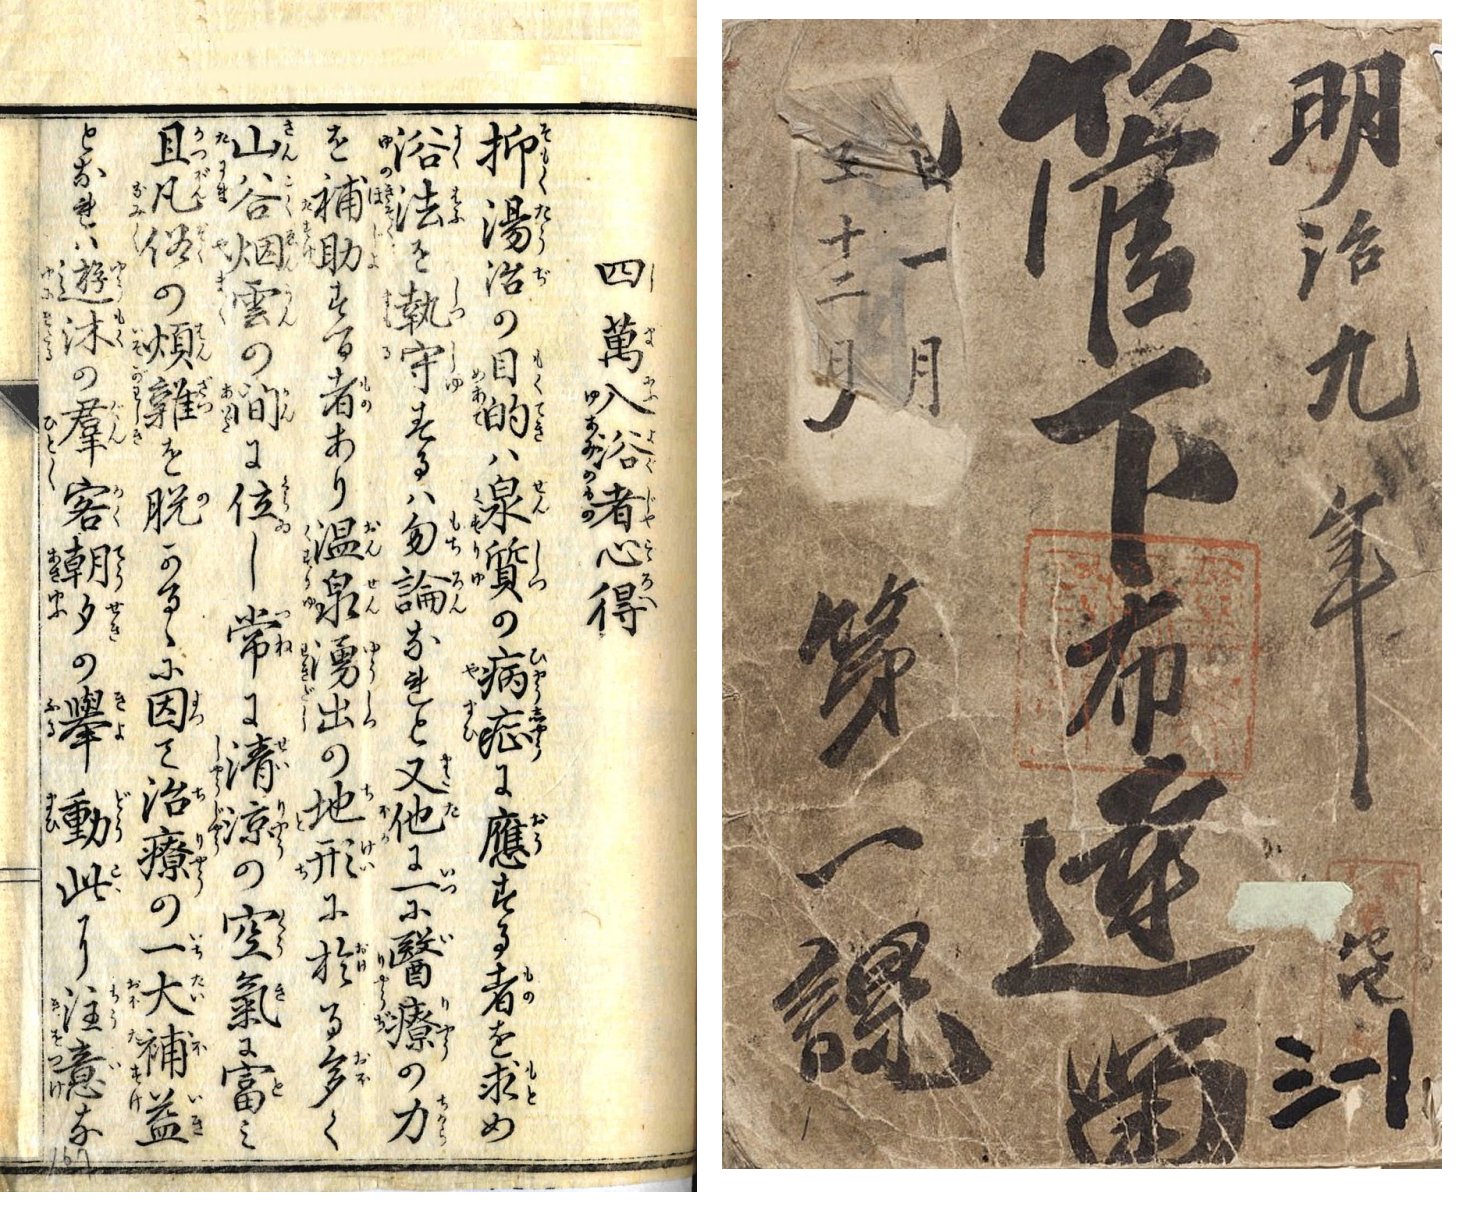 四萬入浴者心得
抑湯治の目的ハ泉質の病症に應する者を求め
浴法を執守するハ勿論なれと又他に一に醫療の力
を補助する者あり温泉湧出の地形に於る多く
山谷烟雲の間に位し常に清涼の空氣に富ミ
且凡俗の煩雜を脱かるゝに因て治療の一大補益
となれハ遊沐の羣客朝夕の擧動此に注意な
明治九年
管下布達留
一月
十二月
第一課